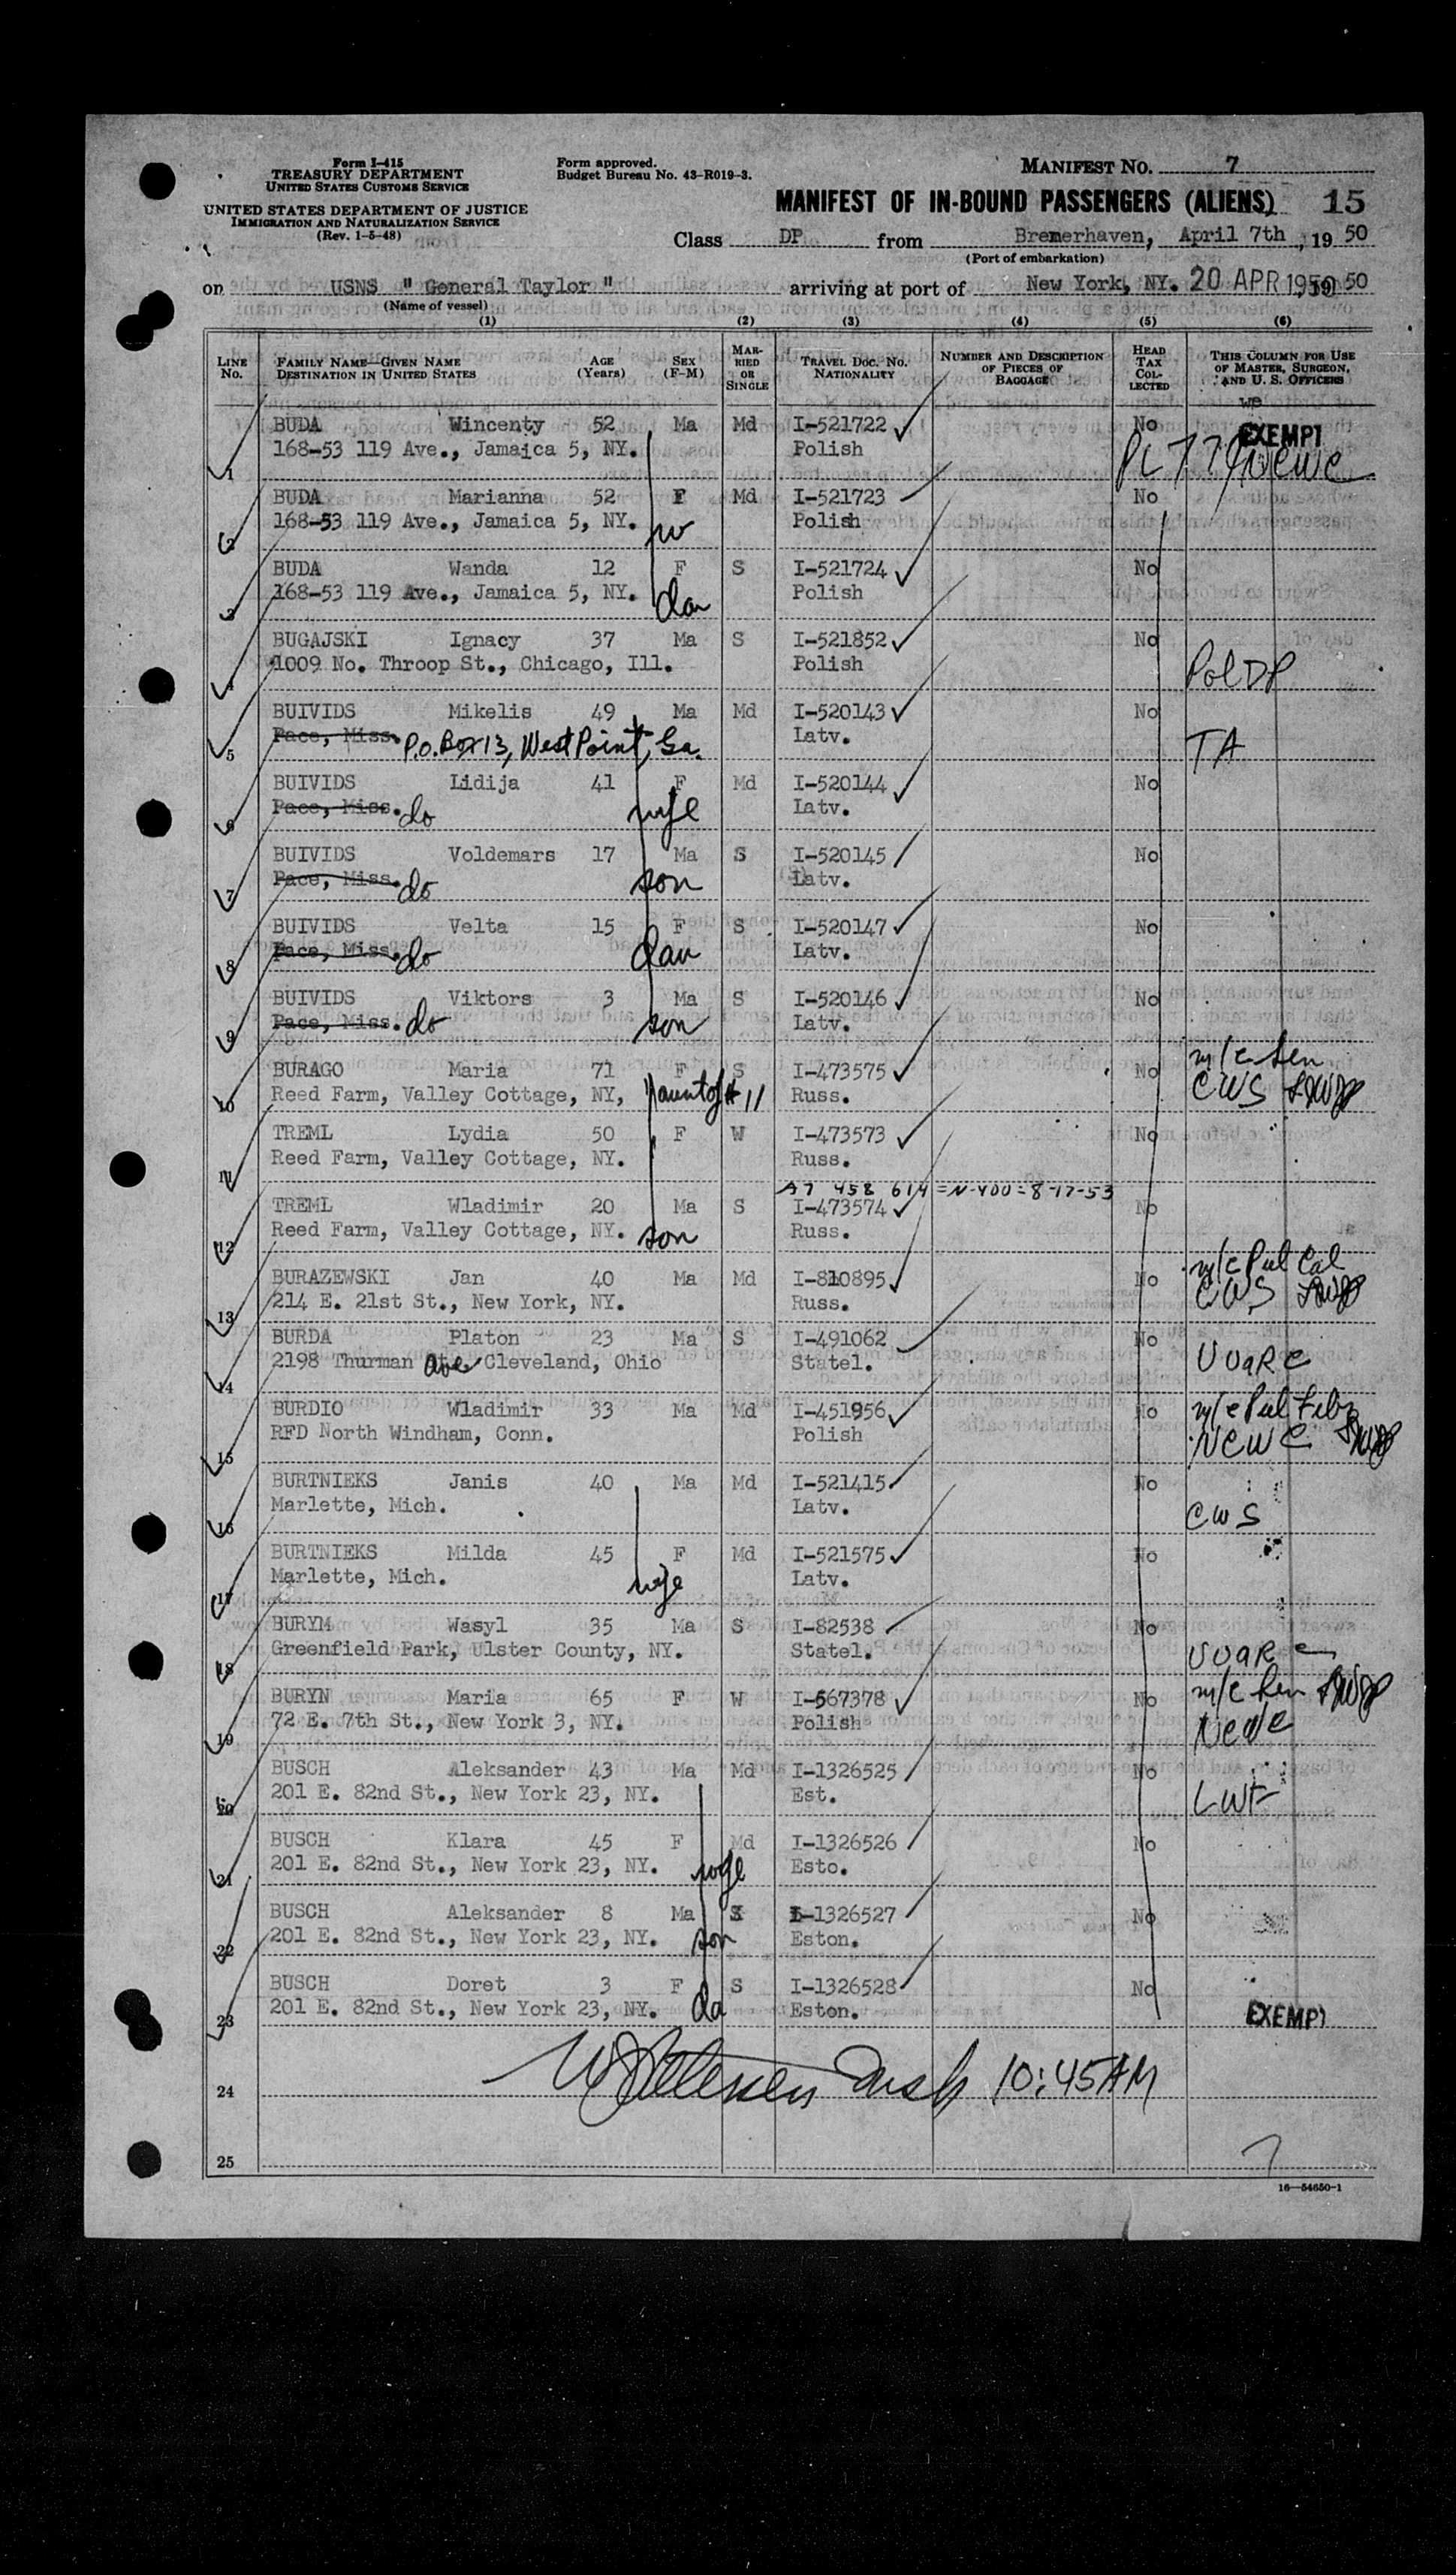 Form I-415
TREASURY DEPARTMENT
UNITED STATES CUSTOMS SERVICE
UNITED STATES DEPARTMENT OF JUSTICE
IMMIGRATION AND NATURALIZATION SERVICE
(Rev. 1-5-48)
Form approved.
Budget Bureau No. 43-R019-3.
MANIFEST NO. 7
MANIFEST OF IN-BOUND PASSENGERS (ALIENS) 15
Class DP from Bremerhaven, April 7th, 19 50
(Port of embarkation)
on USNS " General Taylor " arriving at port of New York, NY. 20 APR 1950 50
(Name of vessel)
(1) (2) (3) (4) (5) (6)
LINE No. FAMILY NAME—GIVEN NAME DESTINATION IN UNITED STATES AGE (Years) SEX (F-M) MARRIED OR SINGLE TRAVEL DOC. NO. NATIONALITY NUMBER AND DESCRIPTION OF PIECES OF BAGGAGE HEAD TAX COLLECTED THIS COLUMN FOR USE OF MASTER, SURGEON, AND U. S. OFFICERS
1 BUDA Wincenty 52 Ma Md I-521722 No EXEMPT
168-53 119 Ave., Jamaica 5, NY. Polish NCWC
2 BUDA Marianna 52 F Md I-521723 No
168-53 119 Ave., Jamaica 5, NY. w Polish
3 BUDA Wanda 12 F S I-521724 No
168-53 119 Ave., Jamaica 5, NY. dau Polish
4 BUGAJSKI Ignacy 37 Ma S I-521852 No
1009 No. Throop St., Chicago, Ill. Polish Pol DP
5 BUIVIDS Mikelis 49 Ma Md I-520143 No
Pace, Miss. P.O. Box 13, West Point, Ga. Latv. TA
6 BUIVIDS Lidija 41 F Md I-520144 No
Pace, Miss. do wife Latv.
7 BUIVIDS Voldemars 17 Ma S I-520145 No
Pace, Miss. do son Latv.
8 BUIVIDS Velta 15 F S I-520147 No
Pace, Miss. do dau Latv.
9 BUIVIDS Viktors 3 Ma S I-520146 No
Pace, Miss. do son Latv.
10 BURAGO Maria 71 F S I-473575 No m/c Sen
Reed Farm, Valley Cottage, NY, aunt of #11 Russ. CWS
11 TREML Lydia 50 F W I-473573 No
Reed Farm, Valley Cottage, NY. Russ.
A7 458 614 = N-400 = 8-17-53
12 TREML Wladimir 20 Ma S I-473574 No
Reed Farm, Valley Cottage, NY. son Russ.
13 BURAZEWSKI Jan 40 Ma Md I-810895 No m/c Pul Cal
214 E. 21st St., New York, NY. Russ. CWS
14 BURDA Platon 23 Ma S I-491062 No
2198 Thurman Ave Cleveland, Ohio Statel. UUARC
15 BURDIO Wladimir 33 Ma Md I-451956 No m/c Pul Fib
RFD North Windham, Conn. Polish NCWC
16 BURTNIEKS Janis 40 Ma Md I-521415 No
Marlette, Mich. Latv. CWS
17 BURTNIEKS Milda 45 F Md I-521575 No
Marlette, Mich. wife Latv.
18 BURYM Wasyl 35 Ma S I-82538 No
Greenfield Park, Ulster County, NY. Statel. UUARC
19 BURYN Maria 65 F W I-567378 No m/c Sen
72 E. 7th St., New York 3, NY. Polish NCWC
20 BUSCH Aleksander 43 Ma Md I-1326525 No
201 E. 82nd St., New York 23, NY. Est. LWF
21 BUSCH Klara 45 F Md I-1326526 No
201 E. 82nd St., New York 23, NY. wife Esto.
22 BUSCH Aleksander 8 Ma S I-1326527 No
201 E. 82nd St., New York 23, NY. son Eston.
23 BUSCH Doret 3 F S I-1326528 No
201 E. 82nd St., New York 23, NY. da Eston. EXEMPT
24 10:45 AM
25
16—54650-1